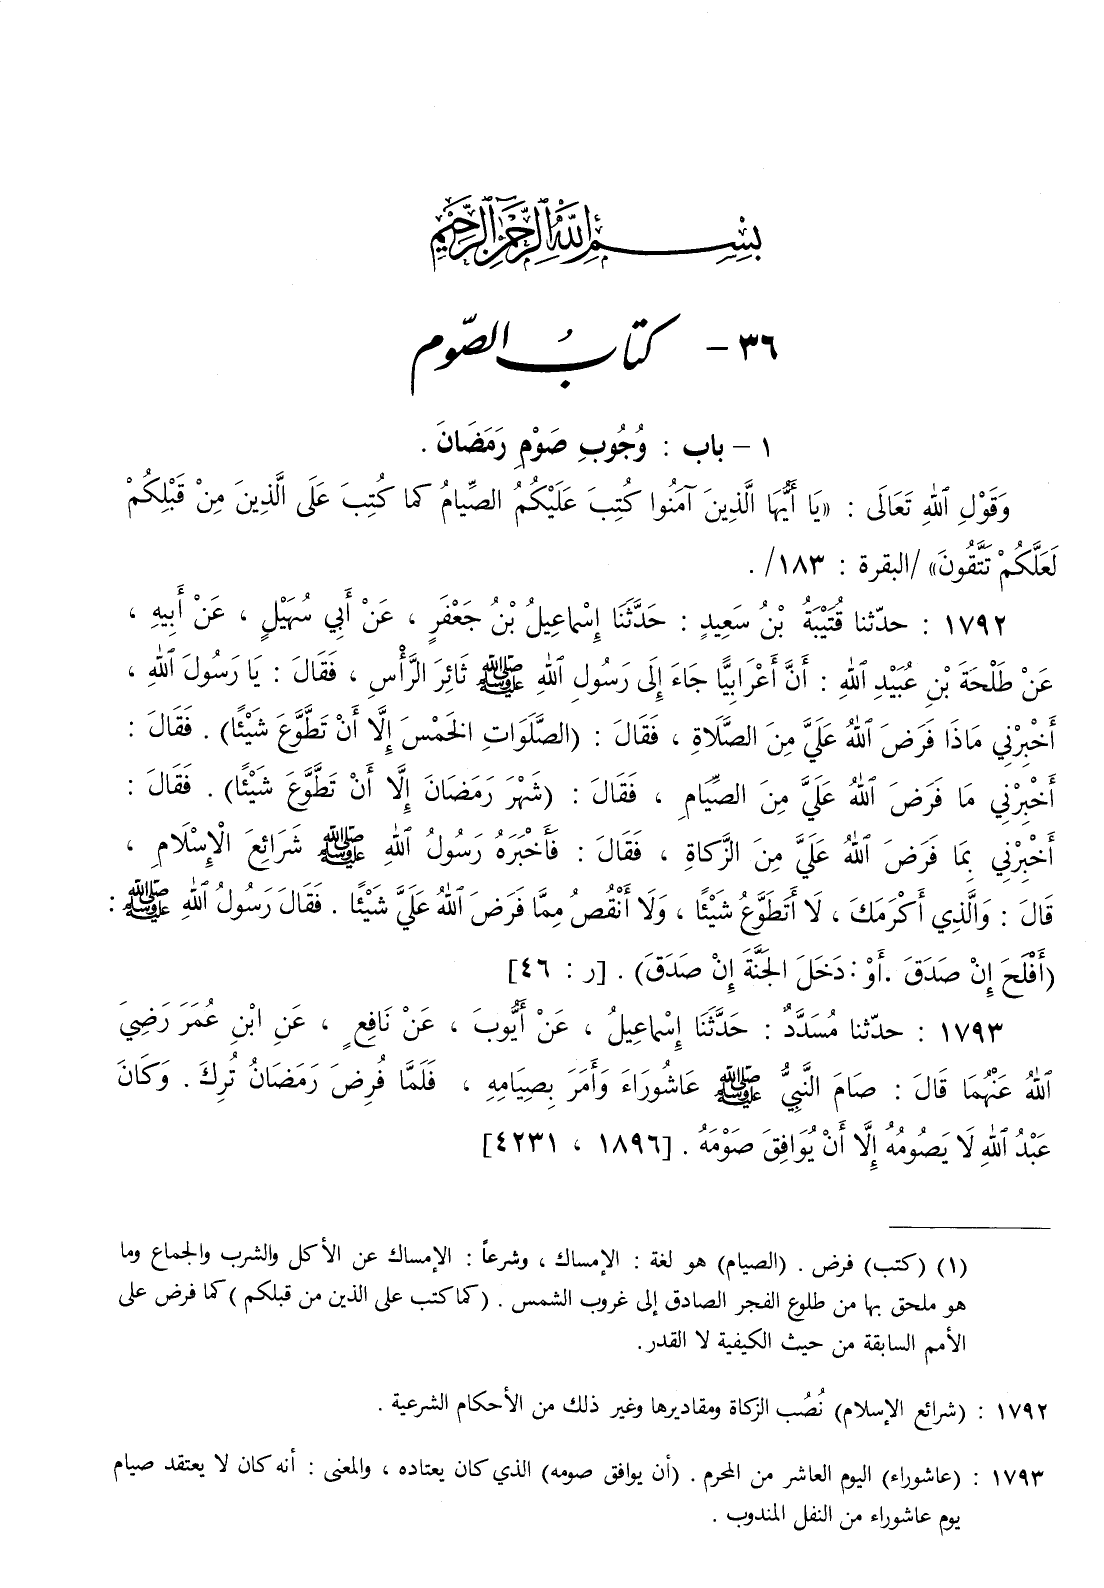 بِسْمِ اللهِ الرَّحْمٰنِ الرَّحِيمِ
٣٦ - كتابُ الصّوم
١ - باب : وُجُوبِ صَوْمِ رَمَضَانَ .
وَقَوْلِ اللهِ تَعَالَى : «يَا أَيُّهَا الَّذِينَ آمَنُوا كُتِبَ عَلَيْكُمُ الصِّيامُ كما كُتِبَ عَلَى الَّذِينَ مِنْ قَبْلِكُمْ
لَعَلَّكُمْ تَتَّقُونَ» /البقرة : ١٨٣/ .
١٧٩٢ : حدّثنا قُتَيْبَةُ بْنُ سَعِيدٍ : حَدَّثَنَا إِسْماعِيلُ بْنُ جَعْفَرٍ ، عَنْ أَبِي سُهَيْلٍ ، عَنْ أَبِيهِ ،
عَنْ طَلْحَةَ بْنِ عُبَيْدِ اللهِ : أَنَّ أَعْرَابِيًّا جَاءَ إِلَى رَسُولِ اللهِ ﷺ ثَائِرَ الرَّأْسِ ، فَقَالَ : يَا رَسُولَ اللهِ ،
أَخْبِرْنِي مَاذَا فَرَضَ اللهُ عَلَيَّ مِنَ الصَّلَاةِ ، فَقَالَ : (الصَّلَوَاتِ الخَمْسَ إِلَّا أَنْ تَطَّوَّعَ شَيْئًا) . فَقَالَ :
أَخْبِرْنِي مَا فَرَضَ اللهُ عَلَيَّ مِنَ الصِّيَامِ ، فَقَالَ : (شَهْرَ رَمَضَانَ إِلَّا أَنْ تَطَّوَّعَ شَيْئًا) . فَقَالَ :
أَخْبِرْنِي بِمَا فَرَضَ اللهُ عَلَيَّ مِنَ الزَّكاةِ ، فَقَالَ : فَأَخْبَرَهُ رَسُولُ اللهِ ﷺ شَرَائِعَ الْإِسْلَامِ ،
قَالَ : وَالَّذِي أَكْرَمَكَ ، لَا أَتَطَوَّعُ شَيْئًا ، وَلَا أَنْقُصُ مِمَّا فَرَضَ اللهُ عَلَيَّ شَيْئًا . فَقَالَ رَسُولُ اللهِ ﷺ :
(أَفْلَحَ إِنْ صَدَقَ . أَوْ : دَخَلَ الجَنَّةَ إِنْ صَدَقَ) . [ر : ٤٦]
١٧٩٣ : حدّثنا مُسَدَّدٌ : حَدَّثَنَا إِسْماعِيلُ ، عَنْ أَيُّوبَ ، عَنْ نَافِعٍ ، عَنِ ابْنِ عُمَرَ رَضِيَ
اللهُ عَنْهُمَا قَالَ : صَامَ النَّبِيُّ ﷺ عَاشُورَاءَ وَأَمَرَ بِصِيَامِهِ ، فَلَمَّا فُرِضَ رَمَضَانُ تُرِكَ . وَكَانَ
عَبْدُ اللهِ لَا يَصُومُهُ إِلَّا أَنْ يُوَافِقَ صَوْمَهُ . [١٨٩٦ ، ٤٢٣١]
(١) (كتب) فرض . (الصيام) هو لغة : الإمساك ، وشرعاً : الإمساك عن الأكل والشرب والجماع وما
هو ملحق بها من طلوع الفجر الصادق إلى غروب الشمس . (كما كتب على الذين من قبلكم) كما فرض على
الأمم السابقة من حيث الكيفية لا القدر.
١٧٩٢ : (شرائع الإسلام) نُصُب الزكاة ومقاديرها وغير ذلك من الأحكام الشرعية .
١٧٩٣ : (عاشوراء) اليوم العاشر من المحرم . (أن يوافق صومه) الذي كان يعتاده ، والمعنى : أنه كان لا يعتقد صيام
يوم عاشوراء من النفل المندوب .